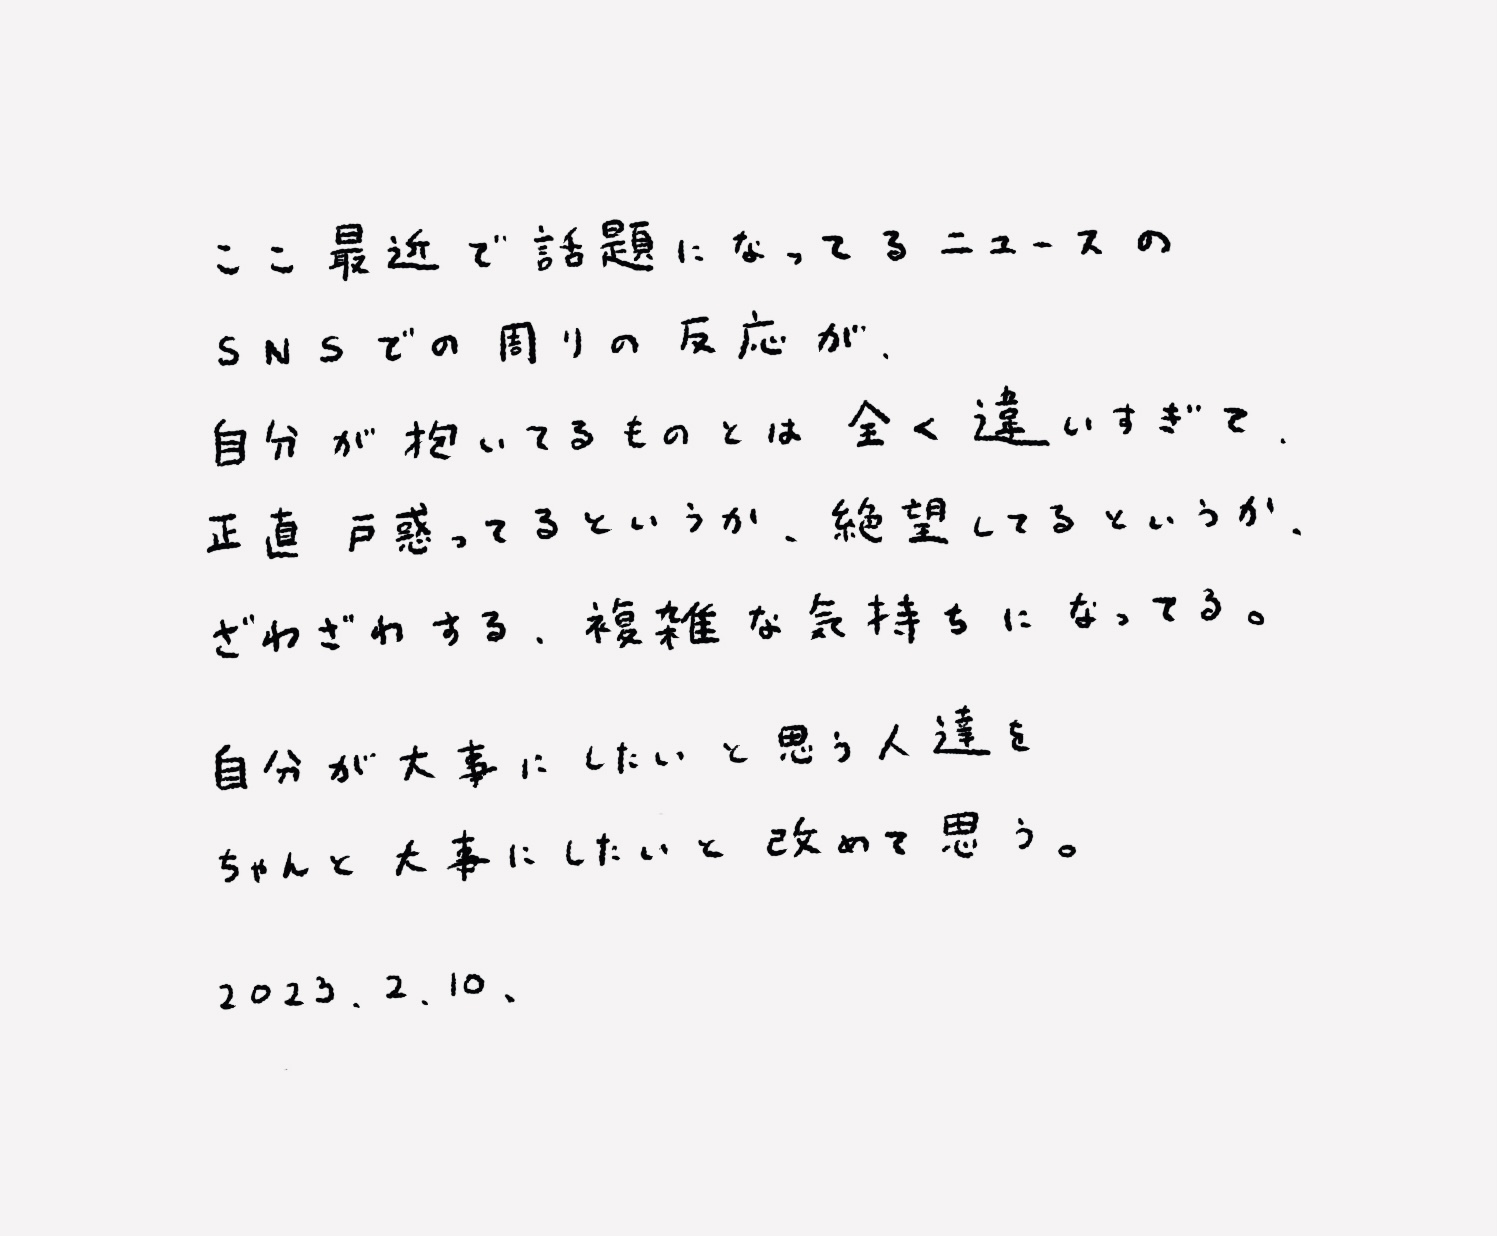 ここ最近で話題になってるニュースの
SNSでの周りの反応が、
自分が抱いてるものとは全く違いすぎて、
正直戸惑ってるというか、絶望してるというか、
ざわざわする、複雑な気持ちになってる。
自分が大事にしたいと思う人達を
ちゃんと大事にしたいと改めて思う。
2023.2.10、